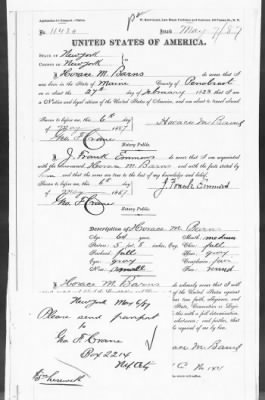 No. 11436
Issued May 7/87
UNITED STATES OF AMERICA.
STATE OF New York
COUNTY OF New York
I, Horace M. Barns do swear that I
was born in the State of Maine County of Penobscot
on the 27th day of February 1823 that I am
a Native and legal citizen of the United States of America, and am about to travel abroad
Sworn to before me, this 6th day Horace M Barns
of May 1887
Geo F Crane
Notary Public.
I, J. Frank Emmons do swear that I am acquainted
with the above-named Horace M. Barns and with the facts stated by
him and that the same are true to the best of my knowledge and belief.
Sworn to before me, this 6th day J Frank Emmons
of May 1887
Geo F Crane
Notary Public.
Description of Horace M. Barns
Age, 60 year Mouth, medium
Stature, 5 feet, 8 inches, Eng. Chin, full
Forehead, full Hair, gray
Eyes, gray Complexion, fair
Nose, small Face, round
I, Horace M. Barns do solemnly swear that I will
New York May 6/87
Please send passport
to
Geo F. Crane
Box 2214
N.Y. City
Horace M Barns